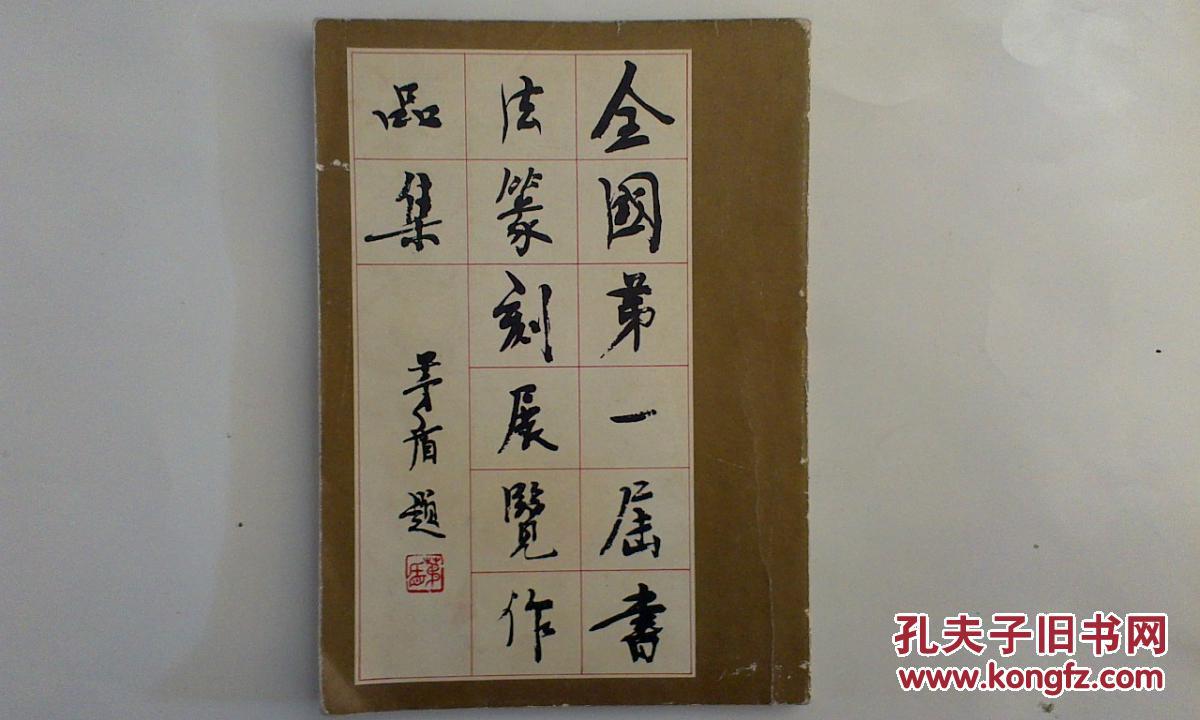 全國第一屆書
法篆刻展覽作
品集
茅盾題
茅盾
孔夫子旧书网
www.kongfz.com